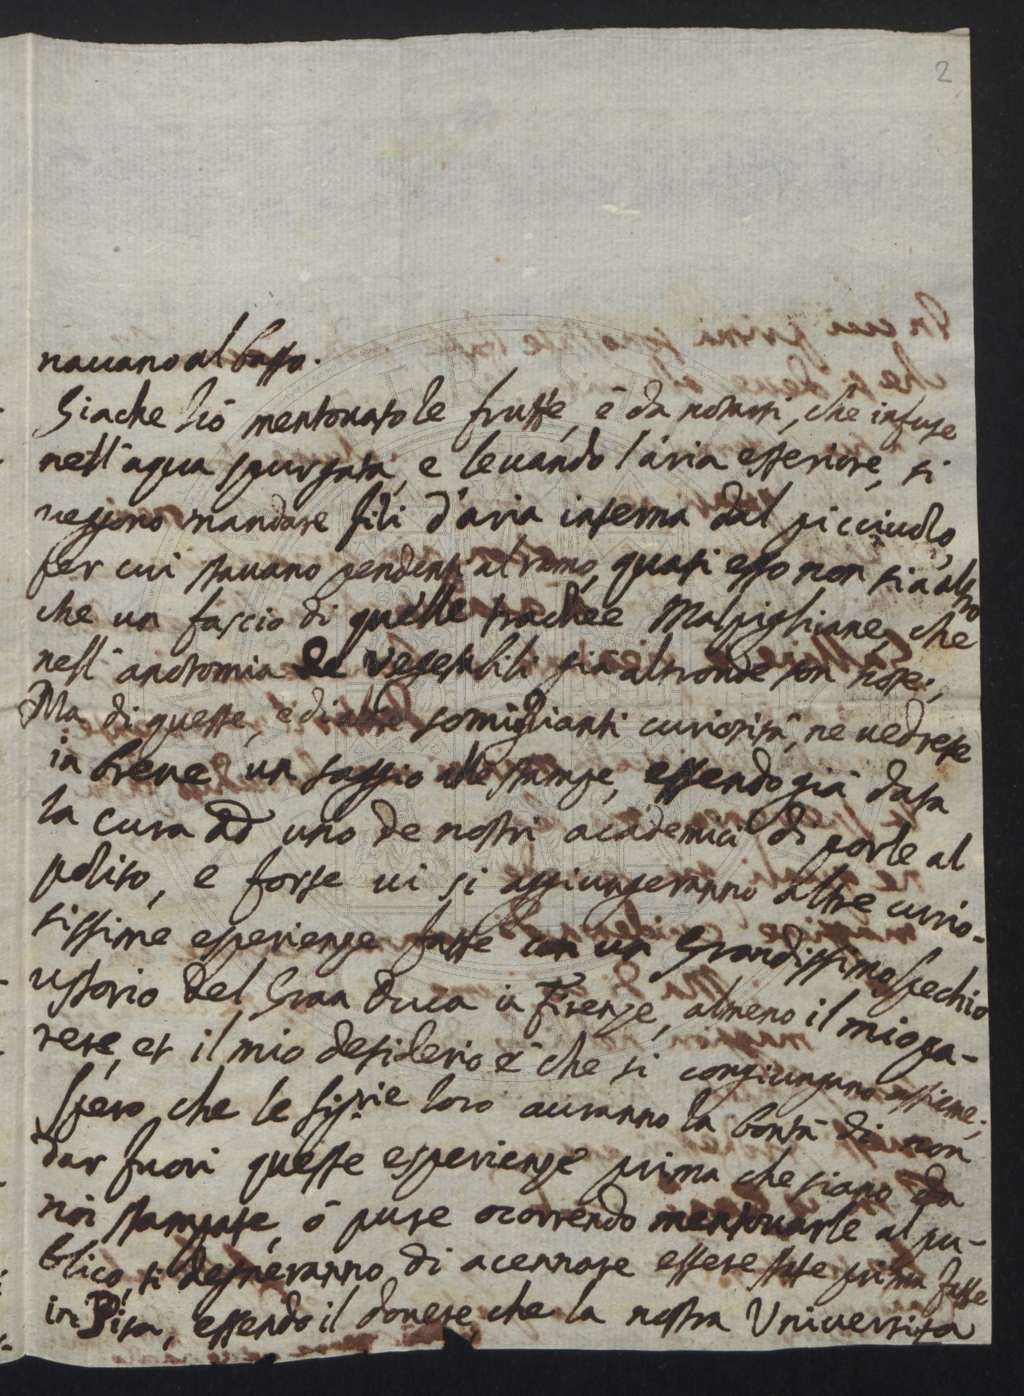 2
nauano al basso.
Giache hò mentouato le frutte, è da notarsi, che infuse
nell'aqua spurgata, e leuando l'aria esteriore, si
uegono mandare fili d'aria interna dal picciuolo,
per cui stauano pendenti al ramo, quasi esso non sia altro
che un fascio di quelle trachee Malpighiane, che
nell'anotomia de vegetabili già altronde son note;
Ma di queste, e di altre somiglianti curiosità, ne uedrete
in breue un saggio alle stampe, essendo già data
la cura ad uno de nostri academici di porle al
polito, e forse ui si aggiungeranno altre curio-
sissime esperienze fatte con un Grandissimo specchio
ustorio del Gran Duca in Firenze, almeno il mio pa-
rere, et il mio desiderio è che si congiungano assieme;
spero che le Sig.rie loro auranno la bontà di non
dar fuori queste esperienze prima che siano da
noi stampate, ò pure ocorrendo mentouarle al pu-
blico, si degneranno di acennare essere state prima fatte
in Pisa, essendo il douere, che la nostra Vniuersità